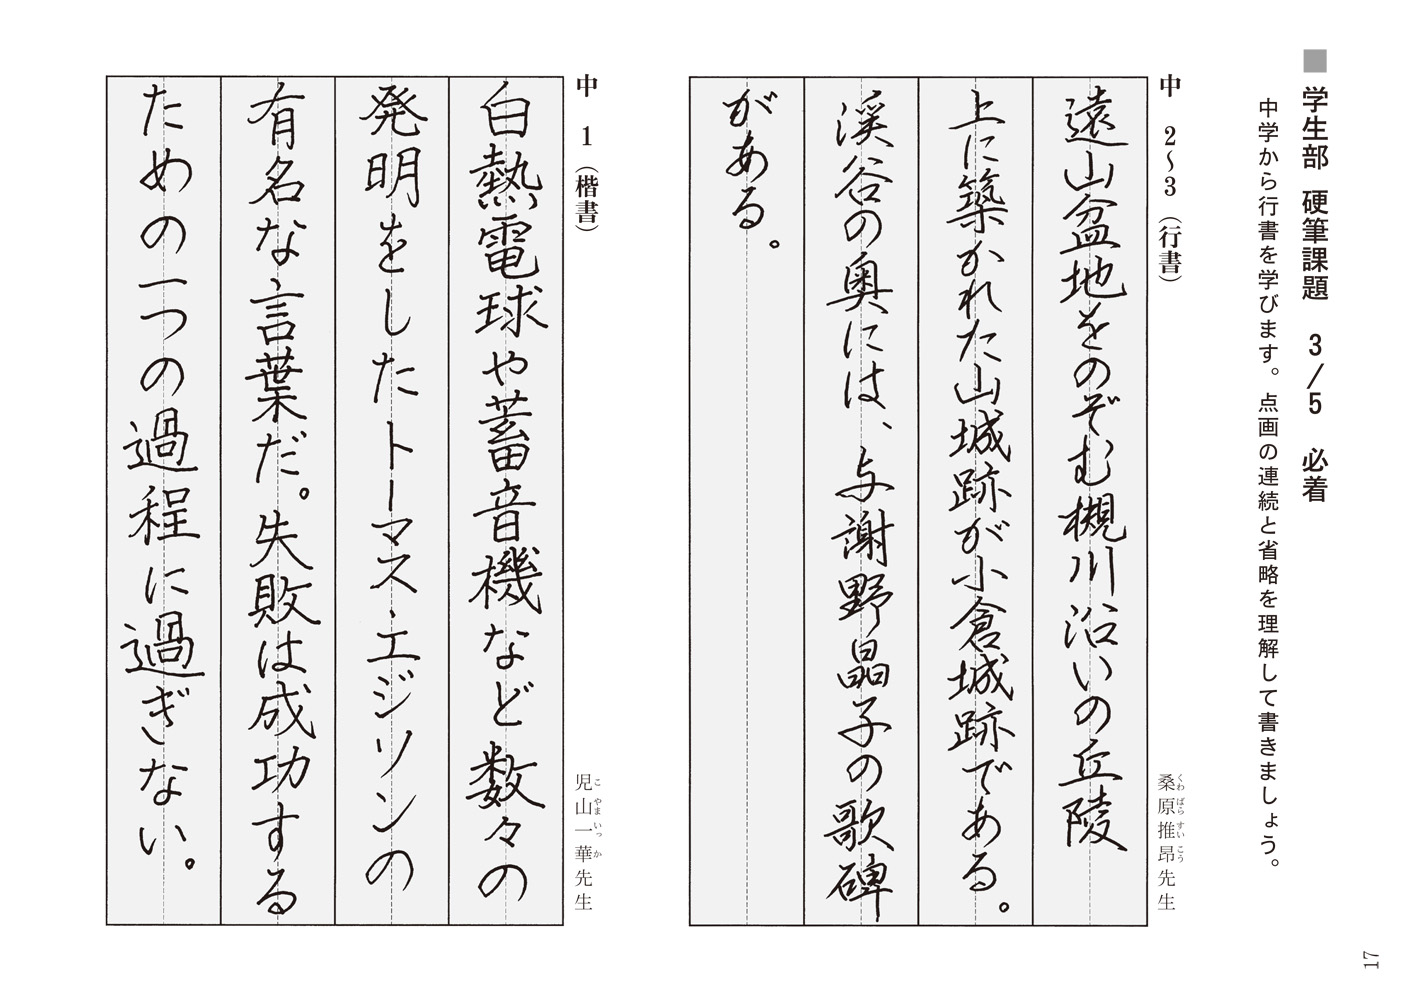 ■学生部 硬筆課題 3/5 必着
中学から行書を学びます。点画の連続と省略を理解して書きましょう。
中 2〜3（行書）
桑原推昂先生
くわばらすいこう
遠山盆地をのぞむ槻川沿いの丘陵
上に築かれた山城跡が小倉城跡である。
渓谷の奥には、与謝野晶子の歌碑
がある。
中 1（楷書）
児山一華先生
こやまいっか
白熱電球や蓄音機など数々の
発明をしたトーマス・エジソンの
有名な言葉だ。失敗は成功する
ための一つの過程に過ぎない。
17